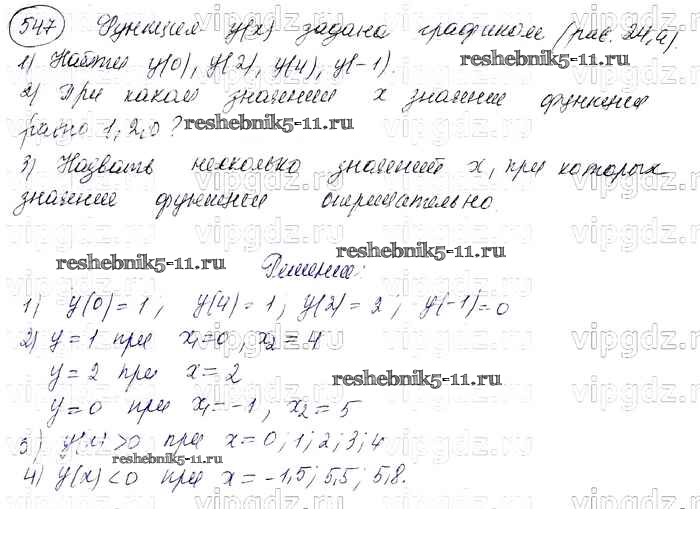 547 Функция y(x) задана графиком (рис. 24,а).
1) Найти y(0), y(2), y(4), y(-1).
2) При каком значении x значение функции
равно 1, 2, 0?
reshebnik5-11.ru
3) Назвать несколько значений x, при которых
значение функции отрицательно.
reshebnik5-11.ru
reshebnik5-11.ru
Решение:
1) y(0)=1; y(4)=1; y(2)=2; y(-1)=0
2) y=1 при x₁=0, x₂=4
y=2 при x=2
reshebnik5-11.ru
y=0 при x₁=-1, x₂=5
3) y(x)>0 при x=0;1;2;3;4
reshebnik5-11.ru
4) y(x)<0 при x=-1,5; 5,5; 5,8.
vipgdz.ru